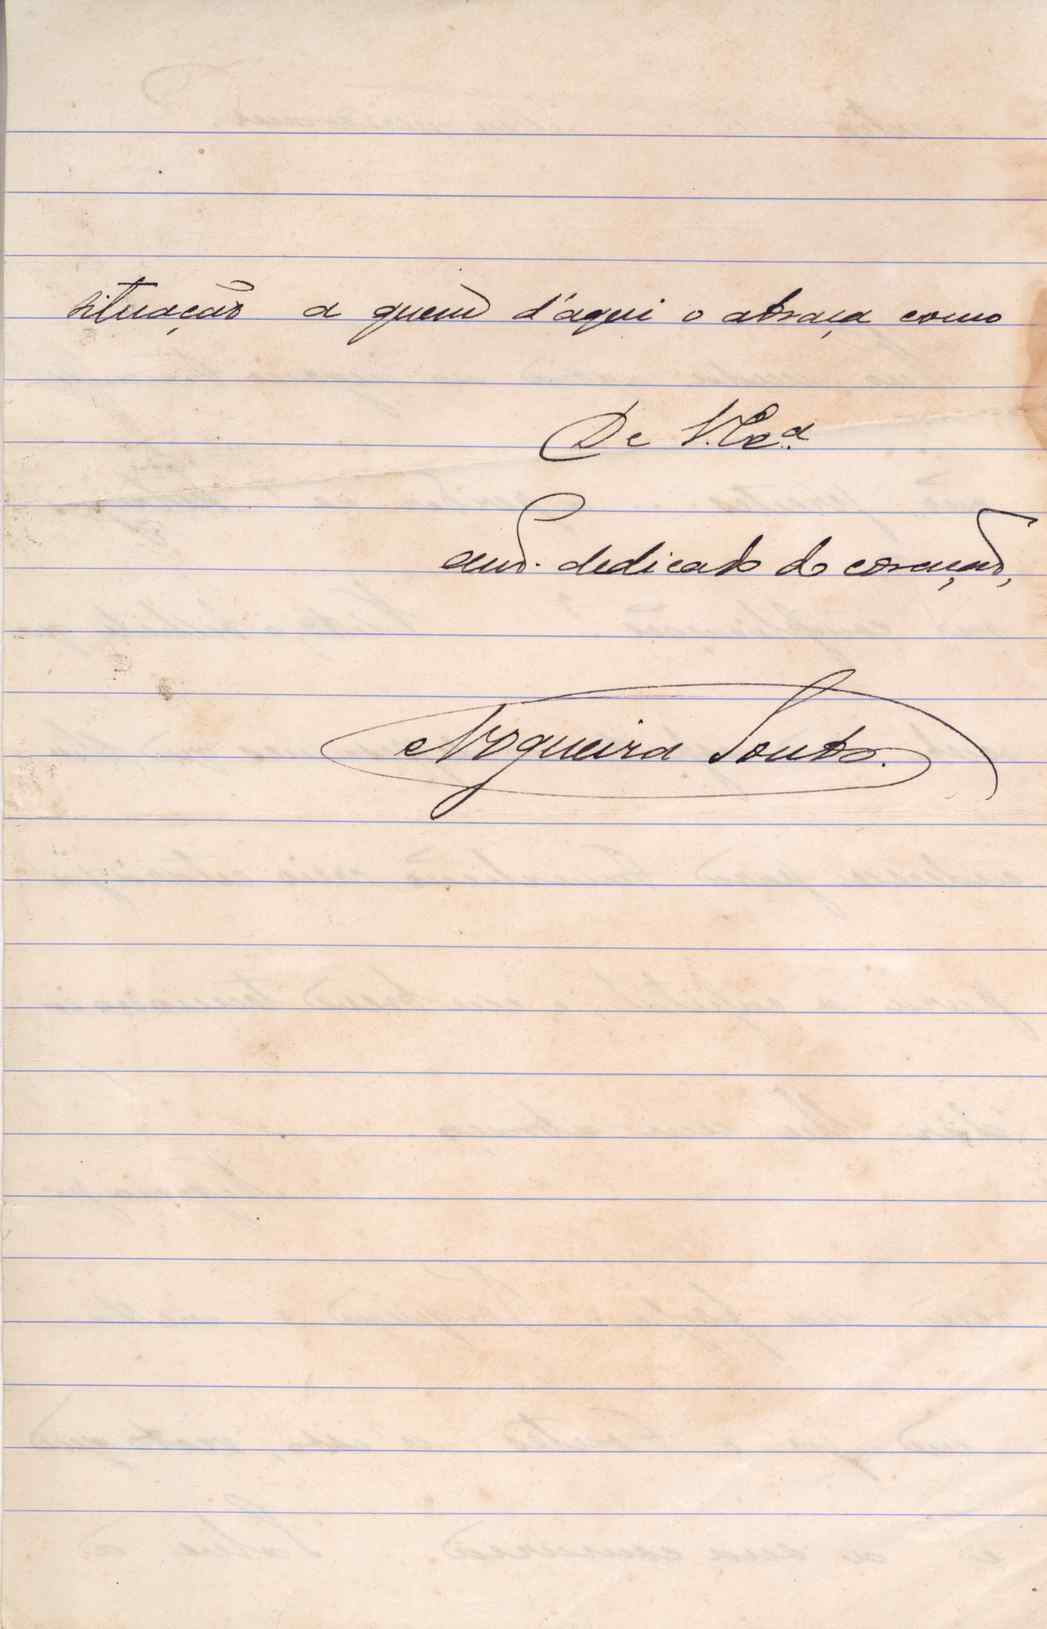 situação a quem d'aqui o abraça como
De V. Exª.
amº. dedicado do coração,
Nogueira Souto.